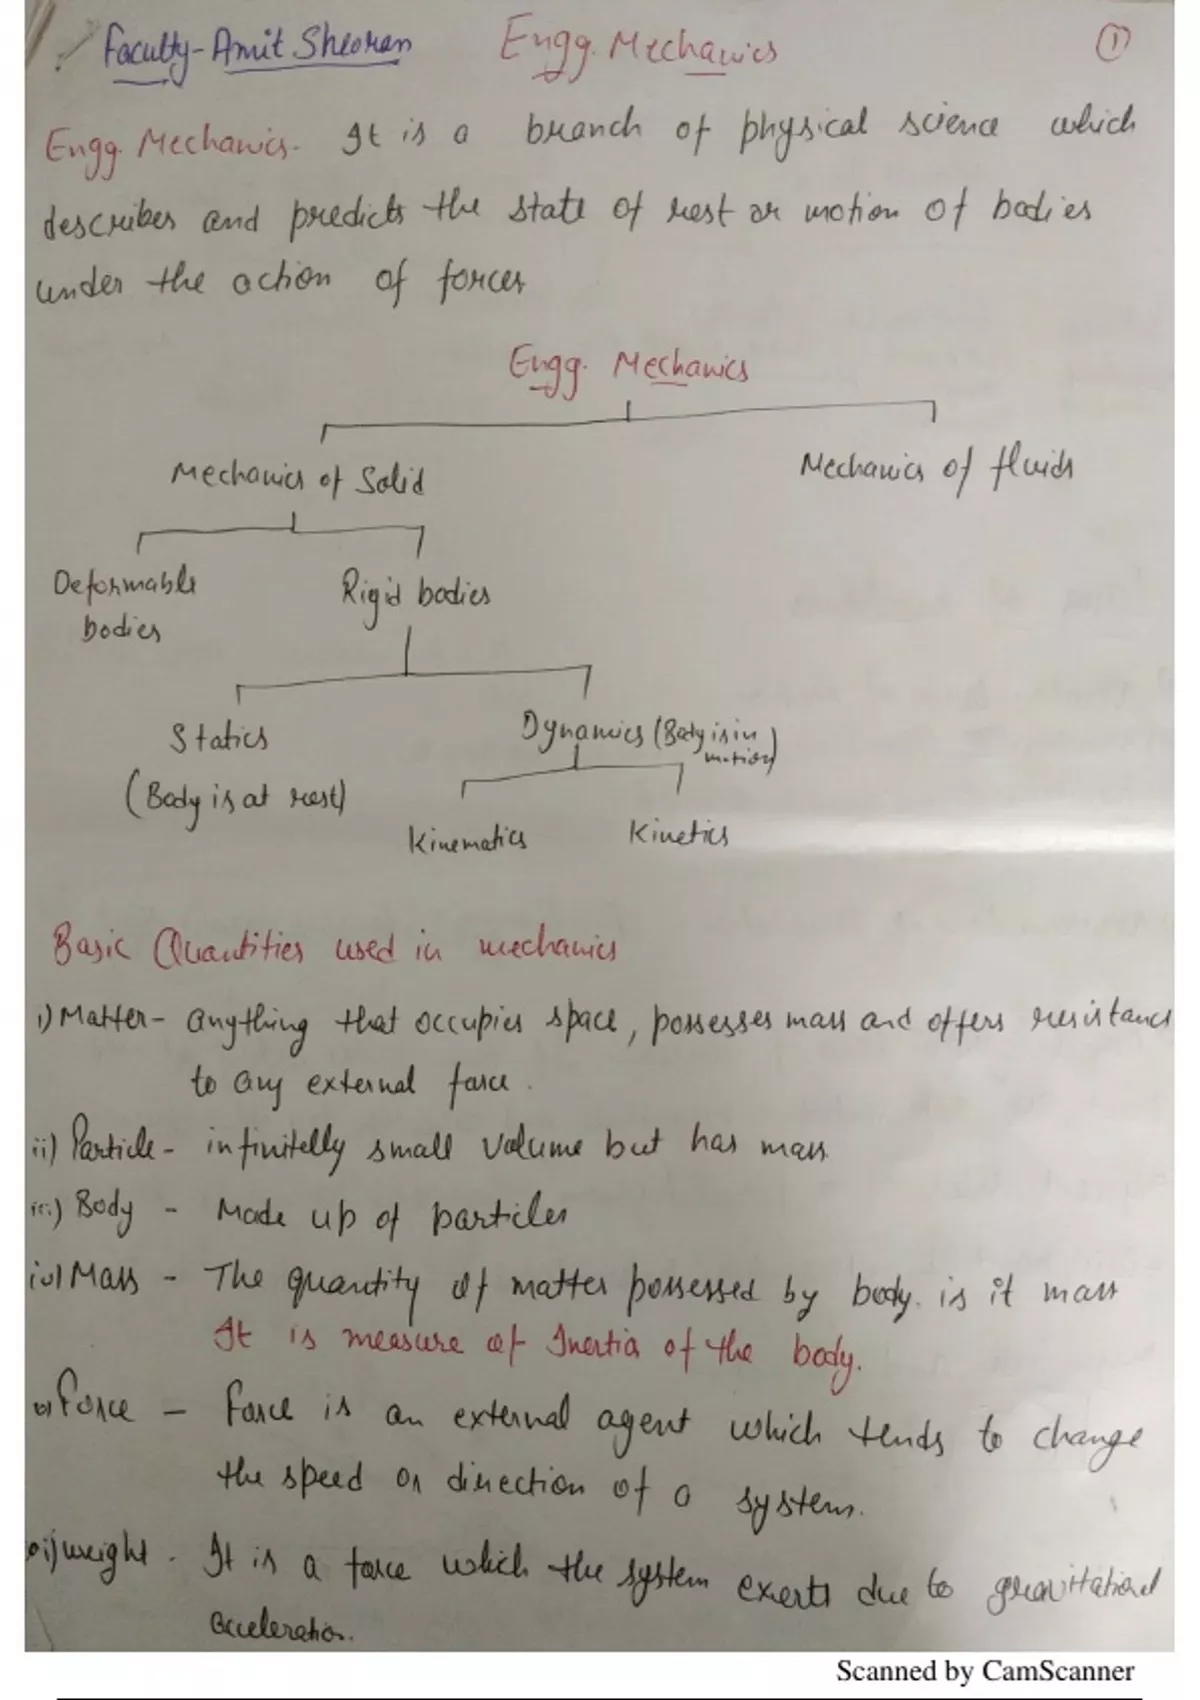 Faculty-Amit Sheoran Engg. Mechanics 1
Engg. Mechanics. It is a branch of physical science which
describes and predicts the state of rest or motion of bodies
under the action of forces
Engg. Mechanics
Mechanics of Solid Mechanics of fluids
Deformable bodies Rigid bodies
Statics Dynamics (Body is in motion)
(Body is at rest)
Kinematics Kinetics
Basic Quantities used in mechanics
i) Matter- anything that occupies space, possesses mass and offers resistance
to any external force.
ii) Particle- infinitelly small volume but has mass
iii) Body - Made up of particles
iv) Mass - The quantity of matter possessed by body. is it mass
It is measure of Inertia of the body.
v) Force - Force is an external agent which tends to change
the speed or direction of a system.
vi) weight - It is a force which the system exerts due to gravitational
acceleration.
Scanned by CamScanner